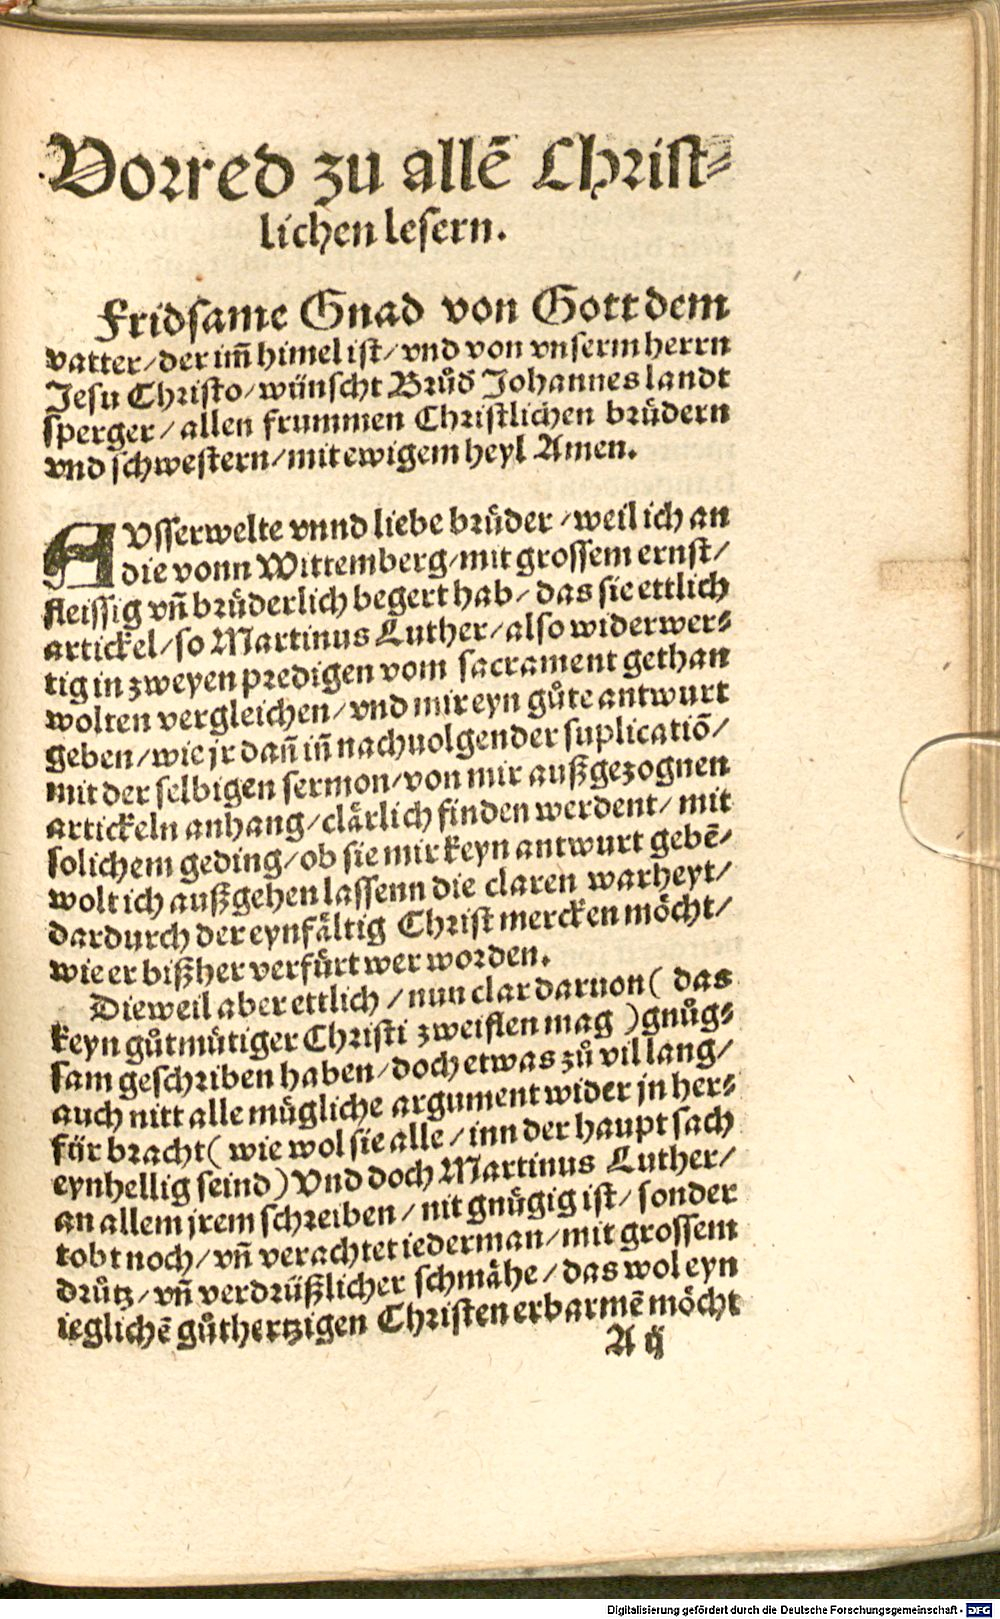 Vorred zu allē Christ-
lichen lesern.
Fridsame Gnad von Gott dem
vatter/der im̄ himel ist/vnd von vnserm herrn
Jesu Christo/wünscht Brůd Johannes landt
sperger/allen frummen Christlichen brüdern
vnd schwestern/mit ewigem heyl Amen.
AVsserwelte vnnd liebe brüder/weil ich an
die vonn Wittemberg/mit grossem ernst/
fleissig vn̄ brüderlich begert hab/das sie ettlich
artickel/so Martinus Luther/also widerwer-
tig in zweyen predigen vom sacrament gethan
wolten vergleichen/vnd mir eyn gůte antwurt
geben/wie jr dan̄ in̄ nachuolgender suplicatiō/
mit der selbigen sermon/von mir außgezognen
artickeln anhang/clärlich finden werdent/mit
solichem geding/ob sie mir keyn antwurt gebē/
wolt ich außgehen lassenn die claren warheyt/
dardurch der eynfältig Christ mercken möcht/
wie er bißher verfürt wer worden.
Dieweil aber ettlich/nun clar daruon(das
keyn gůtmütiger Christi zweiflen mag)gnůg-
sam geschriben haben/doch etwas zů vil lang/
auch nitt alle mügliche argument wider jn her-
für bracht(wie wol sie alle/inn der haupt sach
eynhellig seind)Vnd doch Martinus Luther/
an allem jrem schreiben/nit gnügig ist/sonder
tobt noch/vn̄ verachtet iederman/mit grossem
drůtz/vn̄ verdrüßlicher schmähe/das wol eyn
ieglichē gůthertzigen Christen erbarmē möcht
A ij
Digitalisierung gefördert durch die Deutsche Forschungsgemeinschaft - DFG